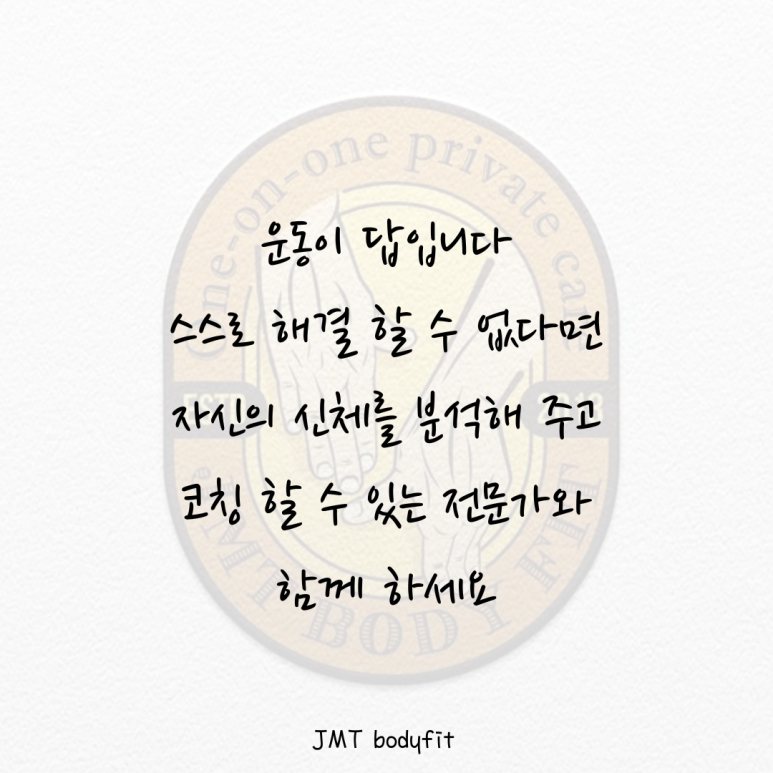 one-on-one private care
운동이 답입니다
스스로 해결 할 수 없다면
자신의 신체를 분석해 주고
코칭 할 수 있는 전문가와
함께 하세요
JMT BODY FIT
JMT bodyfit